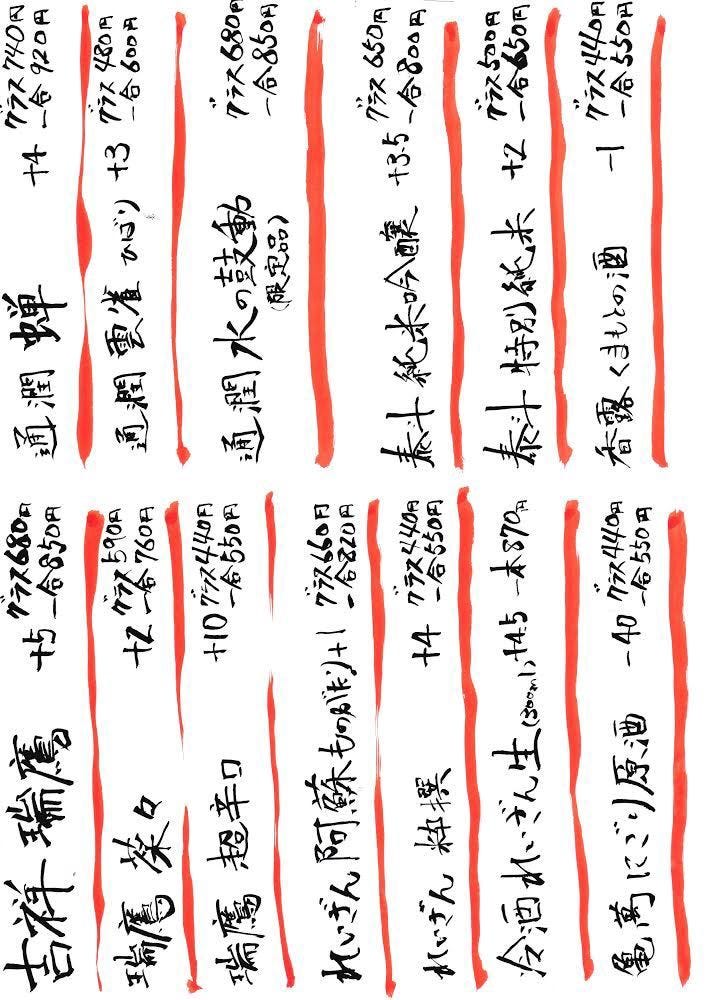 吉祥 瑞鷹 +5 グラス680円
一合850円
瑞鷹 菜々 +2 グラス590円
一合760円
瑞鷹 超辛口 +10 グラス440円
一合550円
れいざん 阿蘇ものがたり +1 グラス660円
一合820円
れいざん 粋撰 +4 グラス440円
一合550円
冷酒 れいざん生(300ml) +4.5 一本870円
亀萬 にごり原酒 -40 グラス440円
一合550円
通潤 蝉 +4 グラス740円
一合920円
通潤 雲雀 ひばり +3 グラス480円
一合600円
通潤 水の鼓動 グラス680円
(限定品) 一合850円
泰斗 純米吟醸 +3.5 グラス650円
一合800円
泰斗 特別純米 +2 グラス500円
一合650円
香露 くまもとの酒 -1 グラス440円
一合550円